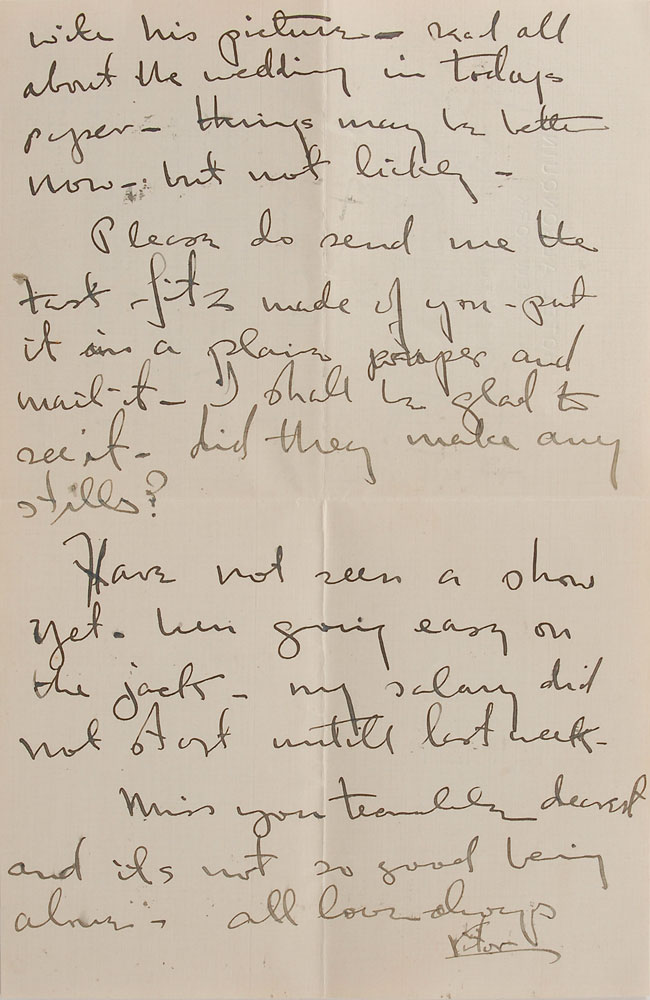 with his picture - read all
about the wedding in todays
paper - things may be better
now - but not likely -
Please do send me the
test they made of you - put
it in a plain paper and
mail it - I shall be glad to
see it - did they make any
stills?
Have not seen a show
yet. been going easy on
the jack - my salary did
not start untill last week -
Miss you dearest
and its not so good being
alone - all love always